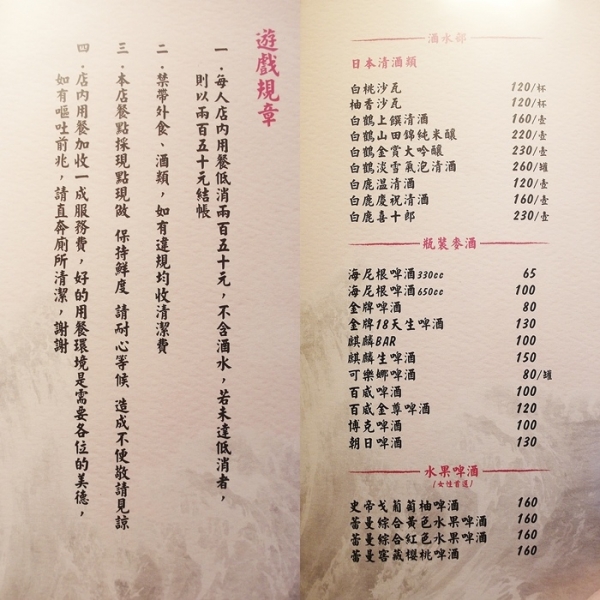 遊戲規章
一．每人店內用餐低消兩百五十元，不含酒水，若未達低消者，
則以兩百五十元結帳
二．禁帶外食、酒類，如有違規均收清潔費
三．本店餐點採現點現做 保持鮮度 請耐心等候 造成不便敬請見諒
四．店內用餐加收一成服務費，好的用餐環境是需要各位的美德，
如有嘔吐前兆，請直奔廁所清潔，謝謝
酒水部
日本清酒類
白桃沙瓦 120/杯
柚香沙瓦 120/杯
白鶴上饌清酒 160/壺
白鶴山田錦純米釀 220/壺
白鶴金賞大吟釀 230/壺
白鶴淡雪氣泡清酒 260/罐
白鹿溫清酒 120/壺
白鹿慶祝清酒 160/壺
白鹿喜十郎 230/壺
瓶裝麥酒
海尼根啤酒330cc 65
海尼根啤酒650cc 100
金牌啤酒 80
金牌18天生啤酒 130
麒麟BAR 100
麒麟生啤酒 150
可樂娜啤酒 80/罐
百威啤酒 100
百威金尊啤酒 120
博克啤酒 100
朝日啤酒 130
水果啤酒
(女性首選)
史帝戈葡萄柚啤酒 160
蕾曼綜合黃色水果啤酒 160
蕾曼綜合紅色水果啤酒 160
蕾曼窖藏櫻桃啤酒 160